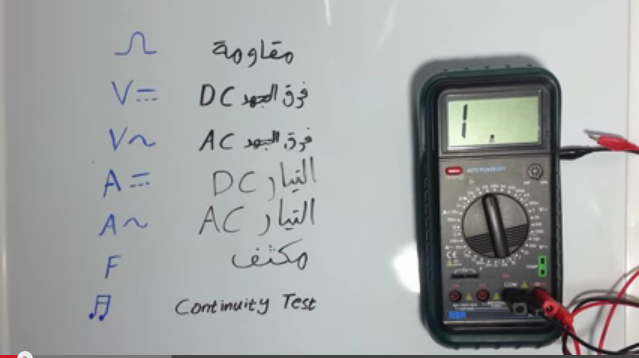 Ω مقاومة
V⎓ فرق الجهد DC
V~ فرق الجهد AC
A⎓ التيار DC
A~ التيار AC
F مكثف
♫ Continuity Test
1.
AUTO POWER OFF
COM